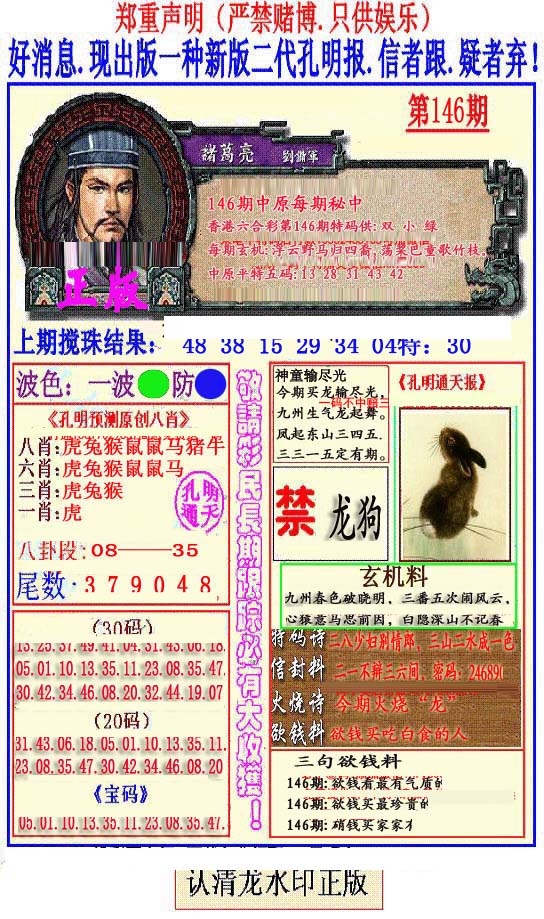 郑重声明（严禁赌博.只供娱乐）
好消息.现出版一种新版二代孔明报.信者跟.疑者弃!
第146期
諸葛亮 劉備軍
146期中原每期秘中
香港六合彩第146期特码供: 双 小 绿
每期玄机:浮云野马归四畜,荡桨巴童歌竹枝.
中原平特五码:13 28 31 43 42
正版
上期搅珠结果: 48 38 15 29 34 04特: 30
波色: 一波 防
《孔明预测原创八肖》
八肖:虎兔猴鼠鼠马猪牛
六肖:虎兔猴鼠鼠马
三肖:虎兔猴
一肖:虎
孔明通天
八卦段:08——35
尾数:379048,
(30码)
13.25.37.49.41.04.31.43.06.18.
05.01.10.13.35.11.23.08.35.47.
30.42.34.46.08.20.32.44.19.07
(20码)
31.43.06.18.05.01.10.13.35.11.
23.08.35.47.30.42.34.46.08.20
《宝码》
05.01.10.13.35.11.23.08.35.47.
敬請彩民長期跟踪必有大收獲!
神童输尽光
今期买龙输尽光,
九州生气龙起舞。
凤起东山三四五.
三三一五定有期。
《孔明通天报》
禁 龙狗
玄机料
九州春色破晓明，三番五次闹风云,
心猿意马思前因，白隐深山不记春
特码诗 二八少妇别情郎，三山二水成一色
信封料 二一不辩三六间，密码: 246890
火烧诗 今期火烧“龙”
欲钱料 欲钱买吃白食的人
三句欲钱料
146期:欲钱看最有气质的
146期:欲钱买最珍贵的
146期:硝钱买家家有
认清龙水印正版